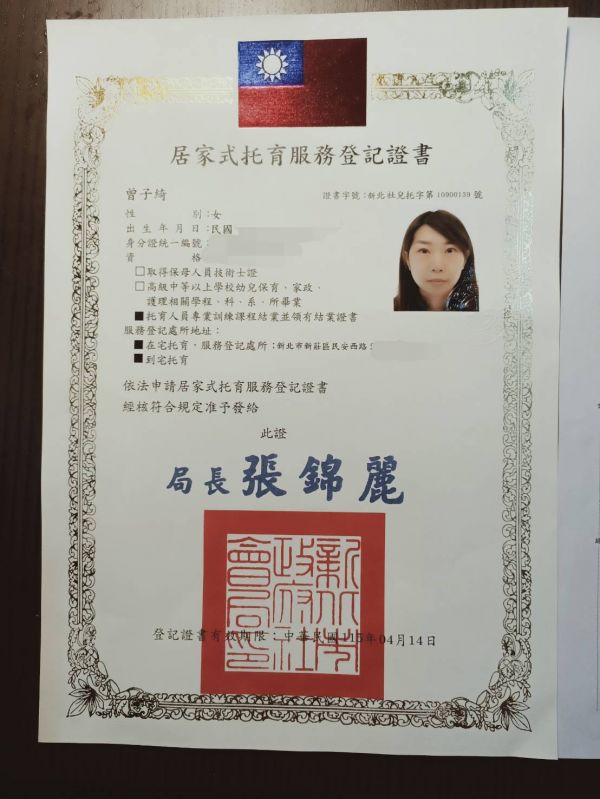 居家式托育服務登記證書
曾子綺 證書字號：新北社兒托字第10900139號
性別：女
出生年月日：民國
身分證統一編號：
資格
□取得保母人員技術士證
□高級中等以上學校幼兒保育、家政、
護理相關學程、科、系、所畢業
■托育人員專業訓練課程結業並領有結業證書
服務登記處所地址：
■在宅托育，服務登記處所：新北市新莊區民安西路
■到宅托育
依法申請居家式托育服務登記證書
經核符合規定准予發給
此證
局長 張錦麗
新北市政府社會局印
登記證書有效期限：中華民國115年04月14日